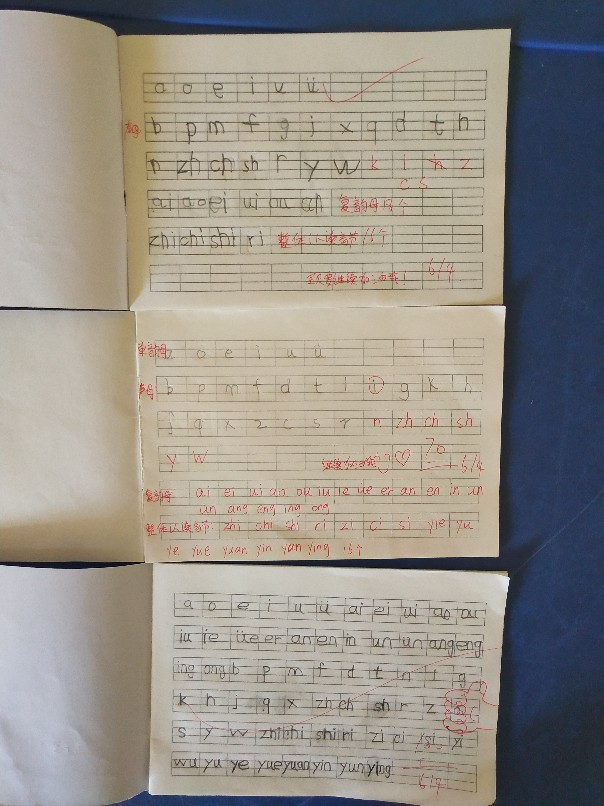 a o e i u ü
声母 b p m f g j x q d t h
n zh ch sh r y w k l z
c s
ai ao ei ui ou 复韵母18个
zhi chi shi ri 整体认读音节16个
6/9
单韵母 a o e i u ü
声母 b p m f d t l g k h
j q x z c s r n zh ch sh
y w
复韵母 ai ei ui ao ou iu ie üe er an en in un
un ang eng ing ong
整体认读音节 zhi shi shi ri zi ci si yie yu
ye yue yuan yin yun ying 16个
a o e i u ü ai ei ui ao ou
iu ie üe er an en in un un ang eng
ing ong b p m f d t n l g
k h j q x zh ch sh r z
s y w zhi chi shi ri zi ci si yi
wu yu ye yue yuan yin yun ying